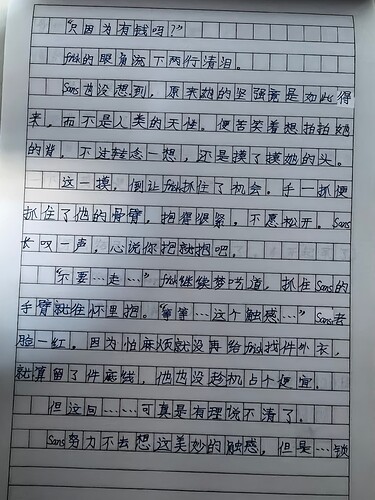 “只因为有钱吗？”
frisk的眼角流下两行清泪。
Sans也没想到，原来她的坚强竟是如此得
来，而不是人类的天性。便苦笑着想拍拍她
的背，不过转念一想，还是摸了摸她的头。
这一摸，倒让frisk抓住了机会。手一抓便
抓住了他的骨臂，抱得很紧。不愿松开。Sans
长叹一声，心说你抱就抱吧。
“不要……走…”frisk继续梦呓道，抓住Sans的
手臂就往怀里抱。“等等…这个触感…”Sans老
脸一红。因为怕麻烦就没再给frisk找件外衣，
就算留了件底线，他也没趁机占个便宜。
但这回……可真是有理说不清了。
Sans努力不去想这美妙的触感，但是…锁